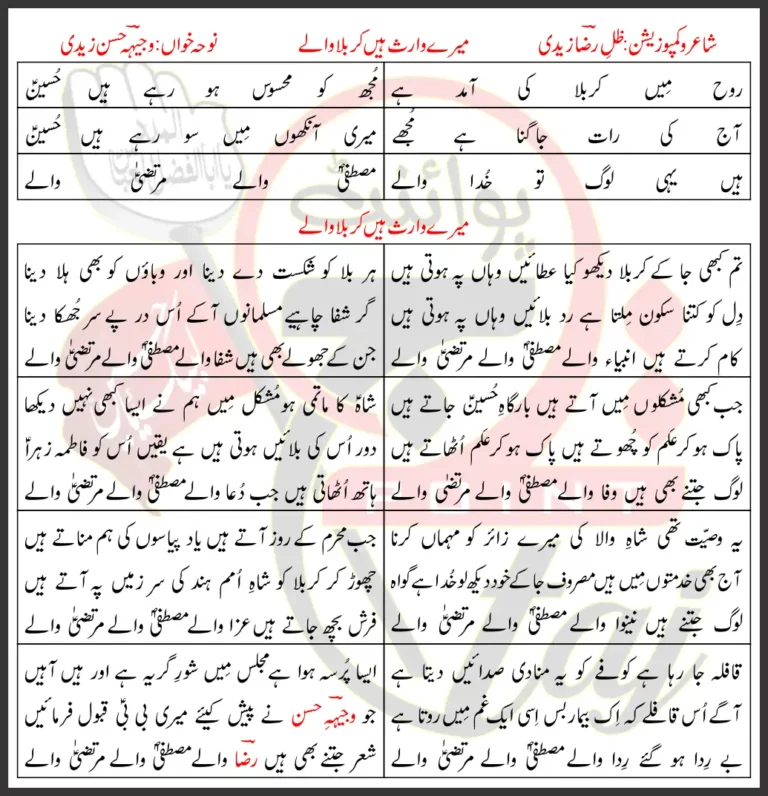 شاعر و کمپوزیشن: ظلِ رضاؔ زیدی میرے وارث ہیں کربلا والے نوحہ خواں: وجیہہؔ حسن زیدی
روح میں کربلا کی آمد ہے مُجھ کو محسوس ہو رہے ہیں حُسینؑ
آج کی رات جاگنا ہے مُجھے میری آنکھوں مِیں سو رہے ہیں حُسینؑ
ہیں یہی لوگ تو خُدا والے مصطفیٰؐ والے مرتضیٰؑ والے
میرے وارث ہیں کربلا والے
تم کبھی جا کے کربلا دیکھو کیا عطائیں وہاں پہ ہوتی ہیں
دِل کو کتنا سکون مِلتا ہے رد بلائیں وہاں پہ ہوتی ہیں
کام کرتے ہیں انبیاء والے مصطفیٰؐ والے مرتضیٰؑ والے
ہر بلا کو شکست دے دینا اور وباؤں کو بھی ہلا دینا
گر شفا چاہیے مسلمانوں آکے اُس در پے سر جُھکا دینا
جن کے جھولے بھی ہیں شفا والے مصطفیٰؐ والے مرتضیٰؑ والے
جب کبھی مُشکلوں مِیں آتے ہیں بارگاہِ حُسینؑ جاتے ہیں
پاک ہو کر علم کو چُھوتے ہیں پاک ہو کر علم اُٹھاتے ہیں
لوگ جتنے بھی ہیں وفا والے مصطفیٰؐ والے مرتضیٰؑ والے
شاہؑ کا ماتمی ہو مُشکل مِیں ہم نے ایسا کبھی نہیں دیکھا
دور اُس کی بلائیں ہوتی ہیں ہے یقیں اُس کو فاطمہ زہراؑ
ہاتھ اُٹھاتی ہیں جب دُعا والے مصطفیٰؐ والے مرتضیٰؑ والے
یہ وصیّت تھی شاہِ والا کی میرے زائر کو مہماں کرنا
آج بھی خدمتوں مِیں ہیں مصروف جا کے خود دیکھ لو خُدا ہے گواہ
لوگ جتنے ہیں نینوا والے مصطفیٰؐ والے مرتضیٰؑ والے
جب محرّم کے روز آتے ہیں یاد پیاسوں کی ہم مناتے ہیں
چھوڑ کر کربلا کو شاہِ اُمم ہند کی سر زمیں پہ آتے ہیں
فرش بچھ جاتے ہیں عزا والے مصطفیٰؐ والے مرتضیٰؑ والے
قافلہ جا رہا ہے کوفے کو یہ منادی صدائیں دیتا ہے
آگے اُس قافلے کہ اِک بیمار بس اِسی ایک غم مِیں روتا ہے
بے رِدا ہو گئے رِدا والے مصطفیٰؐ والے مرتضیٰؑ والے
ایسا پُرسہ ہوا ہے مجلس مِیں شورِ گریہ ہے اور ہیں آہیں
جو وجیہہؔ حسن نے پیش کیئے میری بی بیؑ قبول فرمائیں
شعر جتنے بھی ہیں رضاؔ والے مصطفیٰؐ والے مرتضیٰؑ والے
پوائنٹ
POINT
Taj